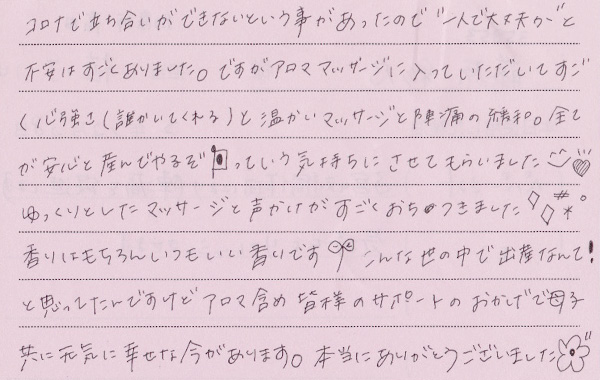 コロナで立ち合いができないという事があったので"一人で大丈夫か"と
不安はすごくありました。ですがアロママッサージに入っていただいてすご
く心強さ(誰かいてくれる)と温かいマッサージと陣痛の緩和。全て
が安心と産んでやるぞっていう気持ちにさせてもらいました
ゆっくりとしたマッサージと声かけがすごくおちつきました
香りはもちろんいつもいい香りです こんな世の中で出産なんて!
と思ってたんですけどアロマ含め皆様のサポートのおかげで母子
共に元気に幸せな今があります。本当にありがとうございました